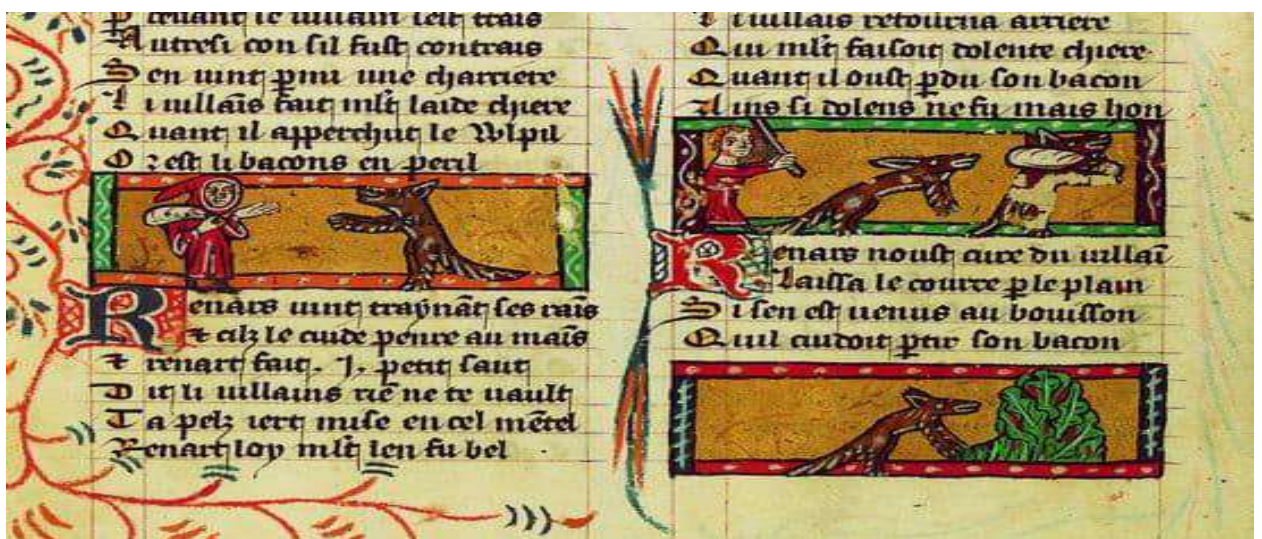 deuant le uillain feit trais
Autresi con sil fust contrais
Sen uint pmi une charriere
Li uillais fait mlt laide chiere
Quant il apperchut le Wlpil
Or est li bacons en peril
Renars uint traynāt ses rais
& cilz le cuide penre au mais
& renart fait . J . petit saut
Dit li uillains riē ne te uault
Ta pelz iert mise en cel mētel
Renart loy mlt len fu bel
Li uillais retourna arriere
Qui mlt faisoit dolente chiere
Quant il oust pdu son bacon
Ains si dolens ne fu mais hon
Renars noust cure du uillai
Laissa le courre p le plain
Si sen est uenus au bouisson
Quil cuidoit ptir son bacon